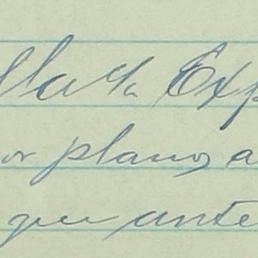 Exp
or planos a
que ante